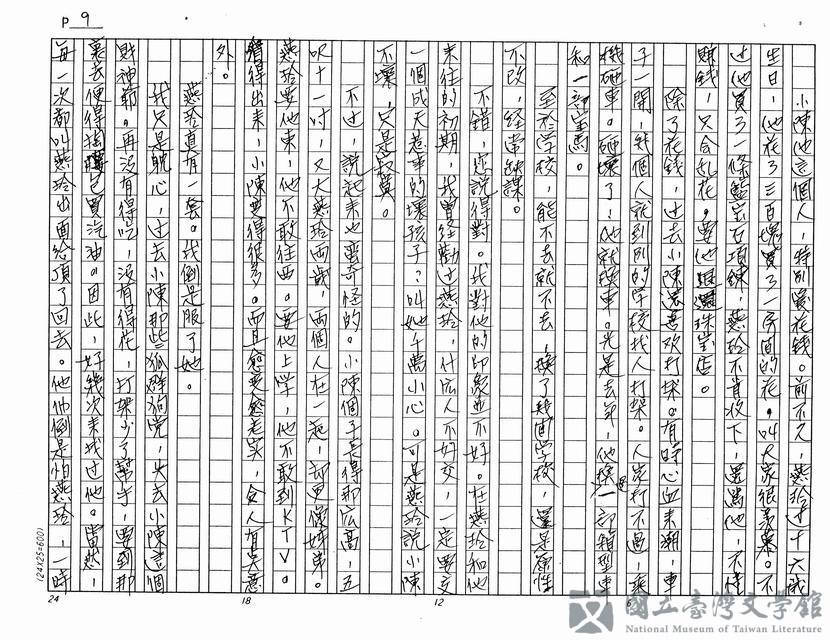 P 9
小陳他這個人，特別愛花錢。前不久，燕玲過十六歲
生日，他花了三百塊買了一房間的花。叫大家很羨慕。不
過他買了一條藍宝石項鍊，燕玲不肯收下，還罵他，不懂
賺錢，只会乱花。要他退還珠宝店。
除了花錢，过去小陳还喜欢打架。有時心血来潮，車
子一開，幾個人就到別的学校找人打架。人家打不過，來
機砸車。砸壞了，他就換車。光是去年，他換過一部箱型車
和一部宝馬。
至於学校，能不去就不去，換了幾间学校，還是惡性
不改，經常缺課。
不錯，您說得對。我對他的印象並不好。在燕玲和他
来往的初期，我曾經勸过燕玲，什么人不好交，一定要交
一個成天惹事的壞孩子？叫她千萬小心。可是燕玲說小陳
不壞，只是寂寞。
不过，說起来也蠻奇怪的。小陳個子長得那么高，五
呎十一吋，又大燕玲两歲，两個人在一起，却更像姊弟。
燕玲要他東，他不敢往西。要他上学，他不敢到KTV。
看得出来，小陳变得很多。而且愈变愈老实，令人有点意
外。
燕玲真有一套。我倒是服了她。
我只是躭心，过去小陳那些狐群狗党，失去小陳這個
財神爺。再沒有得吃，沒有得花，打架少了幫手，要到那
裏去便得掏腰包買汽油。因此，好幾次来找过他。當然，
每一次都叫燕玲出面給頂了回去。他們倒是怕燕玲，一時
24
18
12
6
(24X25=600)
國立臺灣文學館
National Museum of Taiwan Literature